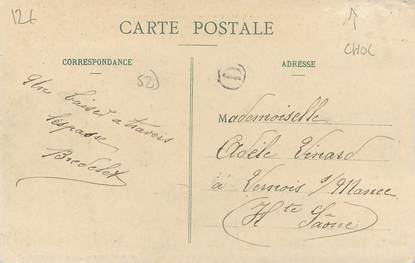 126
CHOC
CARTE POSTALE
CORRESPONDANCE
ADRESSE
52
Un baiser a travers
l'espace
Mademoiselle
Adèle Vinard
à Vernois s/Mance
Hte Saône